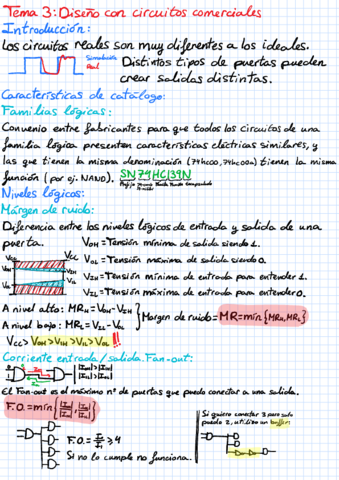 Tema 3: Diseño con circuitos comerciales
Introducción:
Los circuitos reales son muy diferentes a los ideales.
Simulación
Real
Distintos tipos de puertas pueden
crear salidas distintas.
Características de catálogo:
Familias lógicas:
Convenio entre fabricantes para que todos los circuitos de una
familia lógica presenten características eléctricas similares, y
las que tienen la misma denominación (74hc00, 74hc00a) tienen la misma
función (por ej. NAND). SN74HC139N
Niveles lógicos:
Márgen de ruido:
Diferencia entre los niveles lógicos de entrada y salida de una
puerta.
VOH = Tensión mínima de salida siendo 1.
VOL = Tensión máxima de salida siendo 0.
VIH = Tensión mínima de entrada para entender 1.
VIL = Tensión máxima de entrada para entender 0.
VCC
VOH
VIH
VIL
VOL
A nivel alto: MRH = VOH - VIH
A nivel bajo: MRL = VIL - VOL
Márgen de ruido = MR = min {MRH, MRL}
VCC > VOH > VIH > VIL > VOL !!!
Corriente entrada/salida. Fan-out:
El Fan-out es el máximo nº de puertas que puedo conectar a una salida.
F.O. ≥ 4
Si no lo cumple no funciona.
Si quiero conectar 3 pero solo
puedo 2, utilizo un buffer: